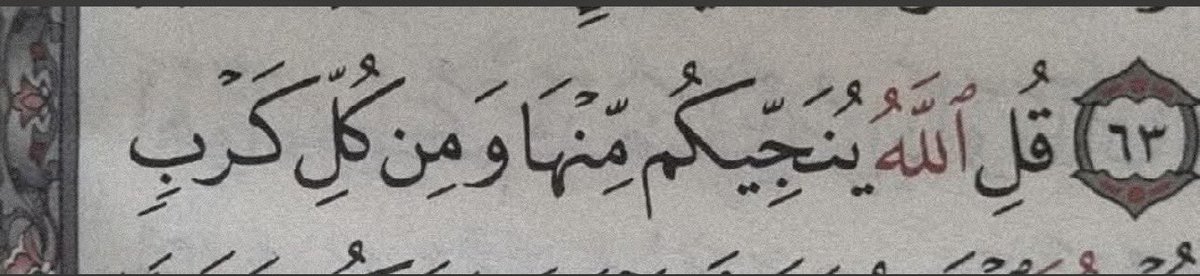 ٦٣ قُلِ ٱللَّهُ يُنَجِّيكُم مِّنْهَا وَ مِن كُلِّ كَرْبٍ